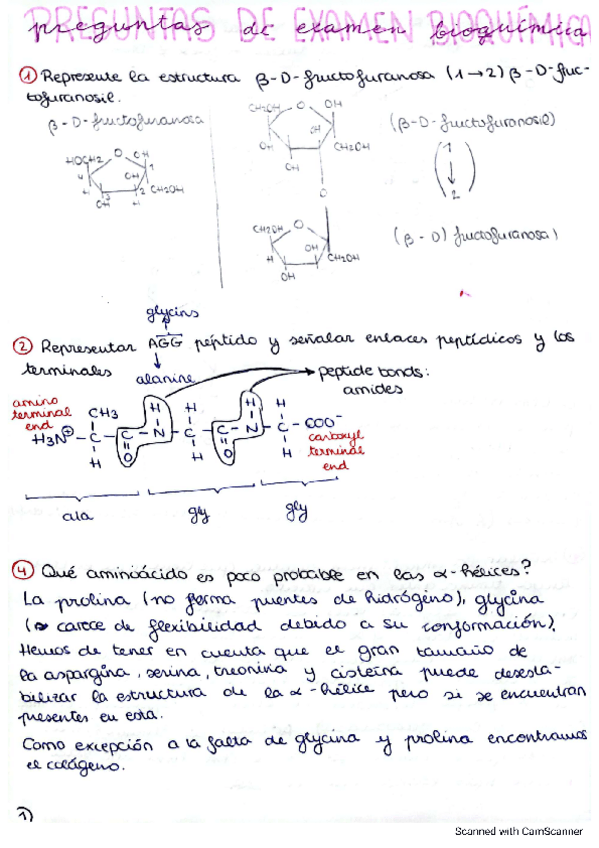 preguntas de examen bioquímica
PREGUNTAS DE EXAMEN BIOQUÍMICA
① Represente la estructura β-D-fructofuranosa (1→2) β-D-fruc-
tofuranosil.
β-D-fructofuranosa
HOCH2 O OH
4 OH 1
3 2 CH2OH
OH H
CH2OH O OH
OH
OH CH2OH
OH
O
CH2OH O
OH
H CH2OH
OH
(β-D-fructofuranosil)
(1↓2)
(β-D) fructofuranosa)
glycins
② Representar AGG péptido y señalar enlaces peptídicos y los
terminales
alanine
peptide bonds:
amides
amino
terminal
end
CH3 H H H H
H3N⊕ - C - C - N - C - C - N - C - COO⁻
H O H O H
carboxyl
terminal
end
ala gly gly
④ Qué aminoácido es poco probable en las α-hélices?
La prolina (no forma puentes de hidrógeno), glycina
(carece de flexibilidad debido a su conformación).
Hemos de tener en cuenta que el gran tamaño de
la aspargina, serina, treonina y cisteína puede desesta-
bilizar la estructura de la α-hélice pero si se encuentran
presentes en esta.
Como excepción a la falta de glycina y prolina encontramos
el colágeno.
1)
Scanned with CamScanner